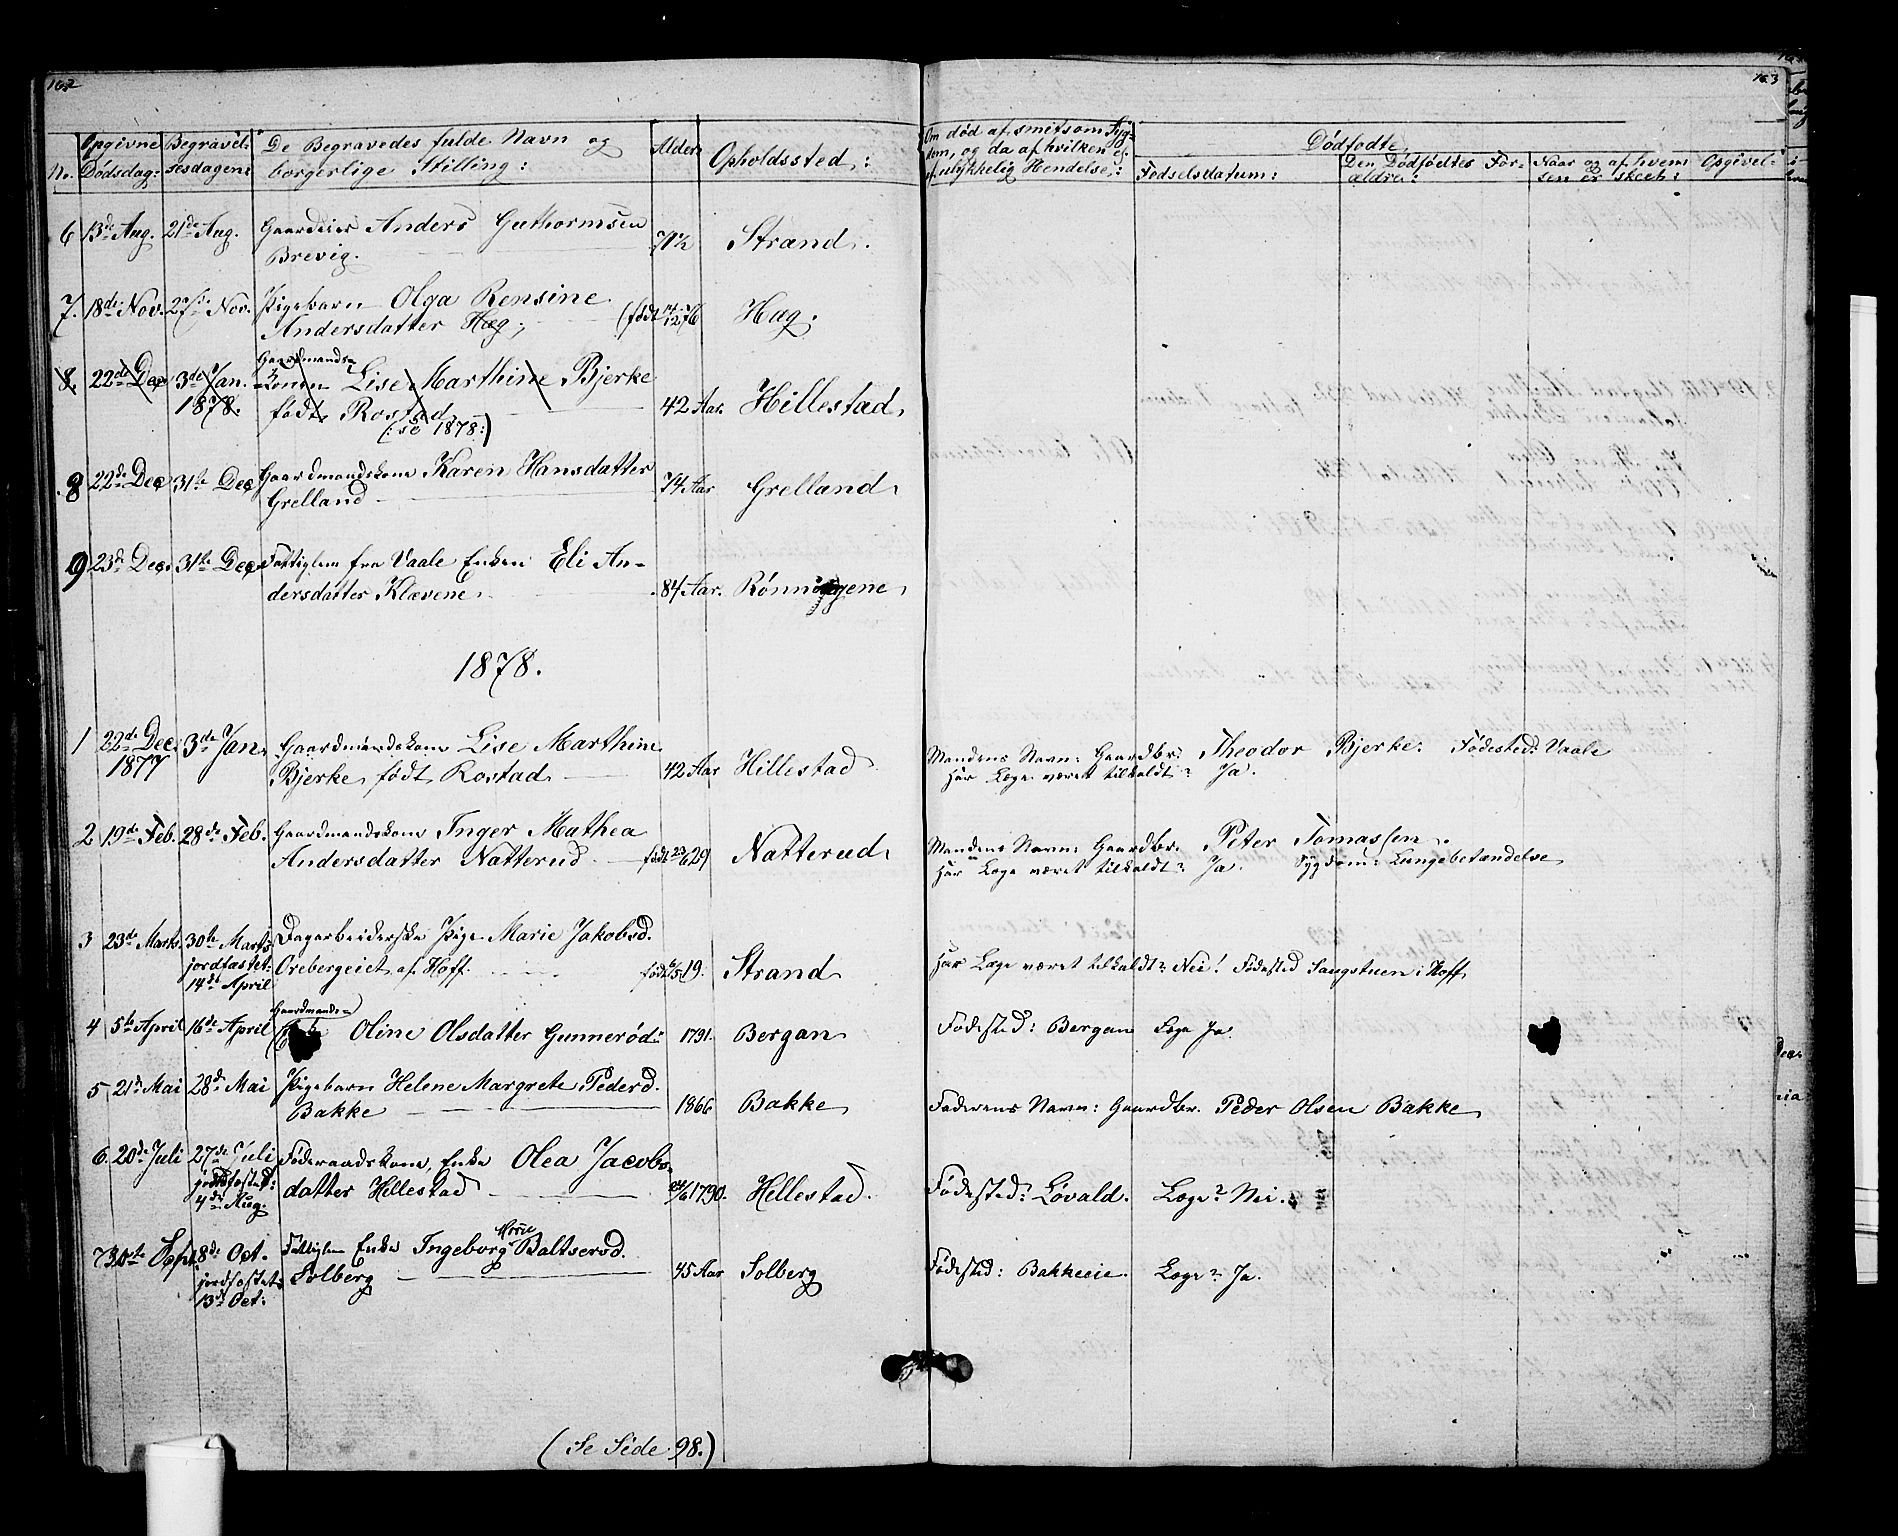 162
163
No.
Opgivne Dödsdag:
Begravelsesdagen:
De Begravedes fulde Navn og
borgerlige Stilling:
Alder:
Opholdssted:
Om död af smitsom Syg-
dom, og da af hvilken
ulykkelig Hendelse:
Dödfödte.
Födselsdatum:
Den Dödfödtes For-
ældre:
Naar og af hvem
sen er skeet:
Opgivel-
6 13de Aug. 21de Aug. Gaardeier Anders Guthormsen
Brevig. 71½ Strand.
7. 18de Nov. 27de Nov. Pigebarn Olga Rensine
Andersdatter Hæg; (födt 14/12 76 Hag;
8. 22de Dec 3de Jan. Gaardmands-
1878. konen Lise Marthine Bjerke
födt Rostad 42 Aar. Hillestad,
(: se 1878:)
8 22de Dec 31te Dec Gaardmandskone Karen Hansdatter
Grelland 74 Aar Grelland,
9 23de Dec. 31te Dec Fattiglem fra Vaale Enken Eli An-
dersdatter Klævene. 84 Aar.
1878.
1 22de Dec. 3de Jan. Gaardmandskone Lise Marthine
1877 Bjerke födt Rostad 42 Aar Hillestad
Mandens Navn: Gaardbr: Theodor Bjerke. Födested: Vaale
Har Læge været tilkaldt? Ja.
2 19de Feb. 28de Feb. Gaardmandskone Inger Mathea
Andersdatter Natterud. födt 23/6 29 Natterud,
Mandens Navn: Gaardbr. Peter Tomassen.
Har Læge været tilkaldt? Ja. Sygdom: Lungebetændelse
3 23de Marts. 30te Marts Dagarbeiderske Pige Marie Jakobsd.
jordfæstet: Orebergeiet af Hoff. födt 19. Strand
14de April
Har Læge været tilkaldt? Nei! Födested Sangstuen i Hoff
4 5te April 16de April Gaardmands-
Oline Olsdatter Gunneröd 1791. Bergan
Födested: Bergan Læge Ja.
5 21de Mai 28de Mai Pigebarn Helene Margrete Pedersd.
Bakke 1866 Bakke
Faderens Navn: Gaardbr. Peder Olsen Bakke
6. 20de Juli 27de Juli Föderaadskone, Enke Olea Jacobs-
jordfæstet: datter Hellestad 24/6 1790. Hellestad.
4de Aug.
Födested: Lövald. Læge? Nei.
7 30te Sept. 8de Oct. Fattiglem Enke Ingeborg Marie Baltsersd.
jordfæstet Solberg 45 Aar Solberg
13de Oct:
Födested: Bakkeeie. Læge? Ja.
(Se Side 98.)